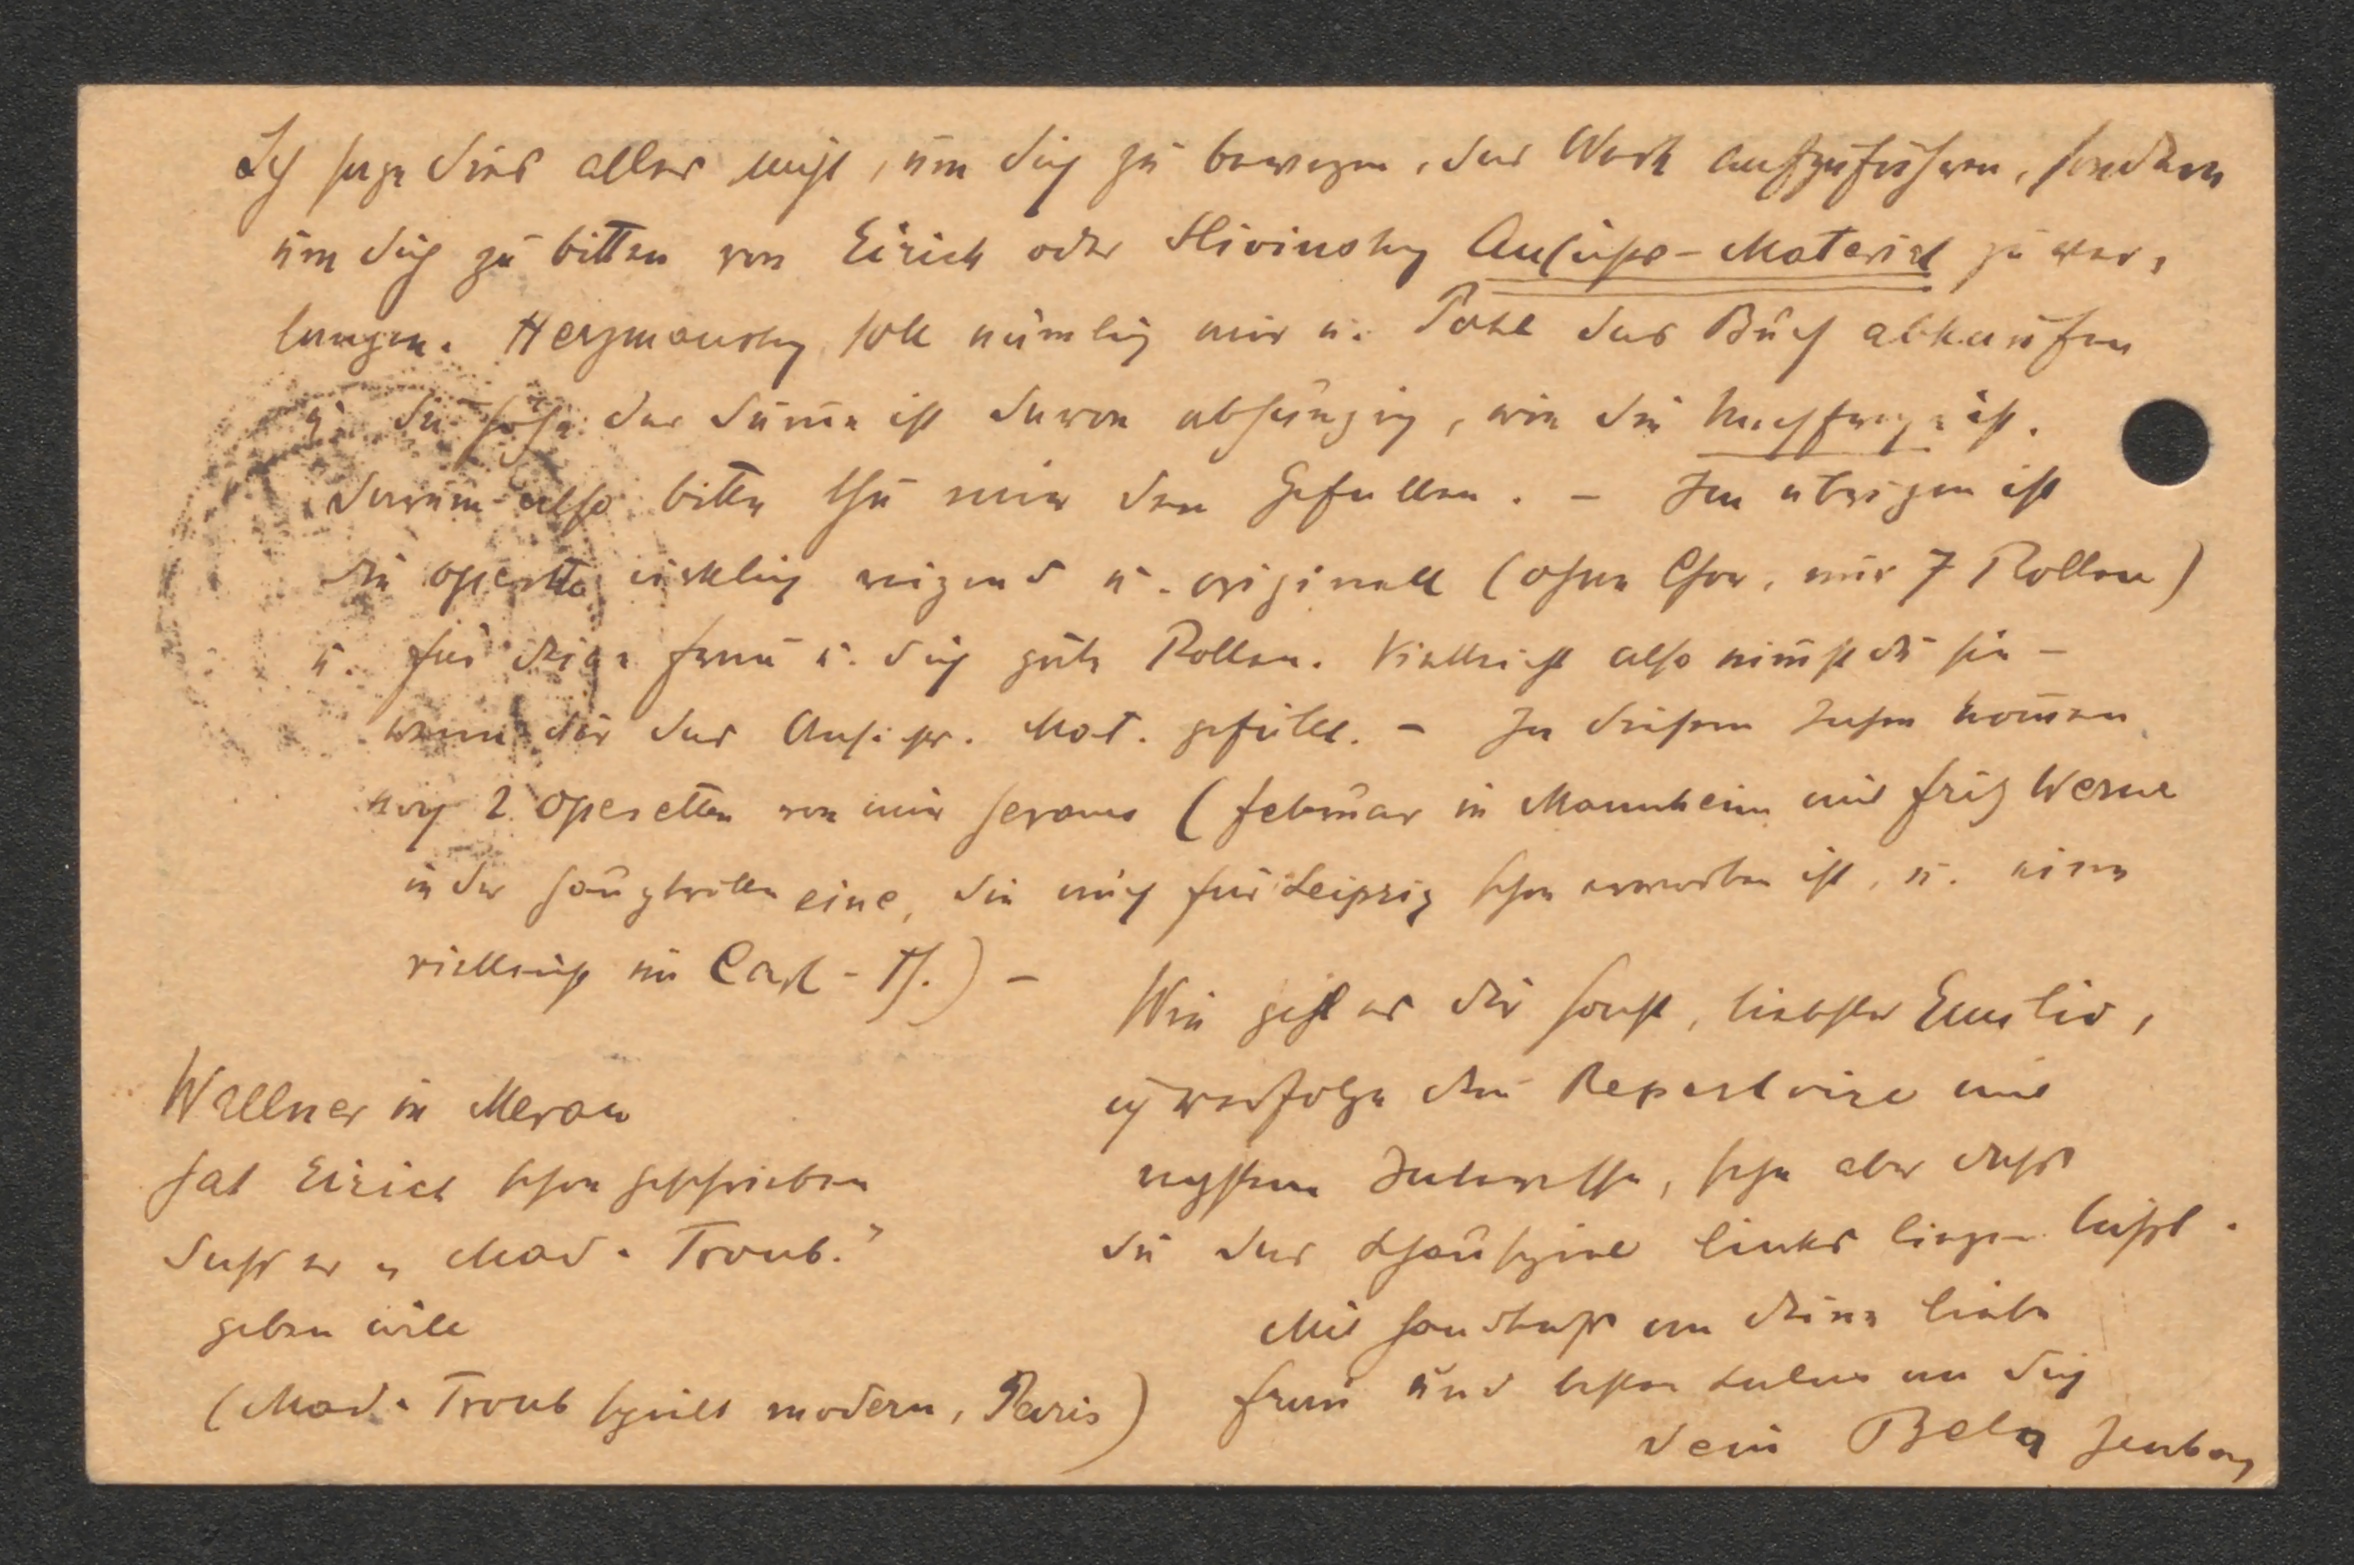 Ich sage dies alles nicht, um dich zu bewegen, das Werk aufzuführen, sondern
um dich zu bitten von Eirich oder Slivinsky Ansichts-Material zu ver-
langen. Herzmansky soll nämlich mir u. Pohl das Buch abkaufen
u. die Höhe der Sum̄e ist davon abhängig, wie die Nachfrage ist.
Darum also bitte thu mir den Gefallen. – Im übrigen ist
die Operette wirklich reizend u. originell (ohne Chor, nur 7 Rollen)
u. für deine Frau u. dich gute Rollen. Vielleicht also nim̄st du sie –
wenn dir das Ansichts. Mat. gefällt. – In diesem Jahre kom̄en
noch 2 Operetten von mir heraus (Februar in Mannheim mit Fritz Werner
in der Hauptrolle eine, die auch für Leipzig schon erworben ist, u. eine
vielleicht im Carl-Th.) –
Wie geht es dir sonst, liebster Emilio,
ich verfolge dein Repertoire mit
regstem Interesse, sehe aber dass
du das Schauspiel links liegen lässt.
Mit Handkuss an deine liebe
Frau und besten Salus an dich
dein Bela Jenbach
Wallner in Meran
hat Eirich schon geschrieben
dass er „Mad. Troub."
geben will
(Mad. Troub spielt modern, Paris)